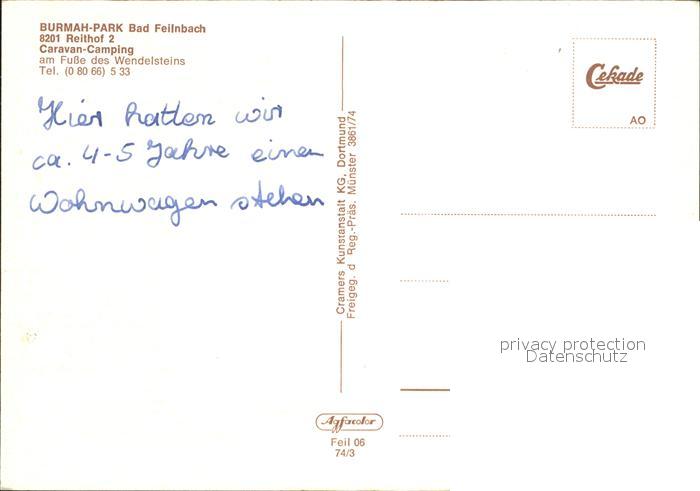 BURMAH-PARK Bad Feilnbach
8201 Reithof 2
Caravan-Camping
am Fuße des Wendelsteins
Tel. (0 80 66) 5 33
Hier hatten wir
ca. 4-5 Jahre einen
Wohnwagen stehen
Cramers Kunstanstalt KG, Dortmund
Freigeg. d Reg.-Präs. Münster 3861/74
Cekade
AO
privacy protection
Datenschutz
Agfacolor
Feil 06
74/3